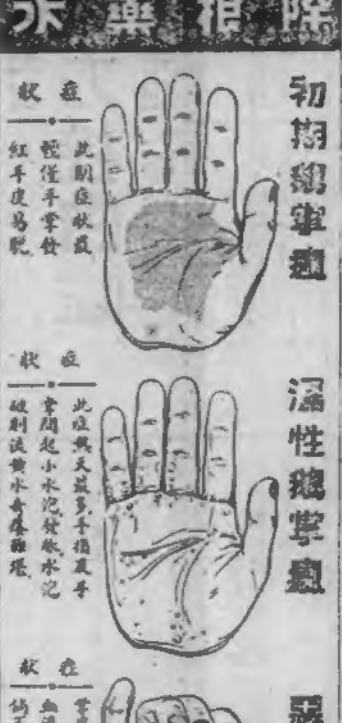 除根藥水
初期鵝掌瘋
症狀
此期症狀最
輕僅手掌發
紅手皮易脫
濕性鵝掌瘋
症狀
此症熱天最多手指及手
掌間起小水泡發癢水泡
破則流黄水奇癢難堪
症狀